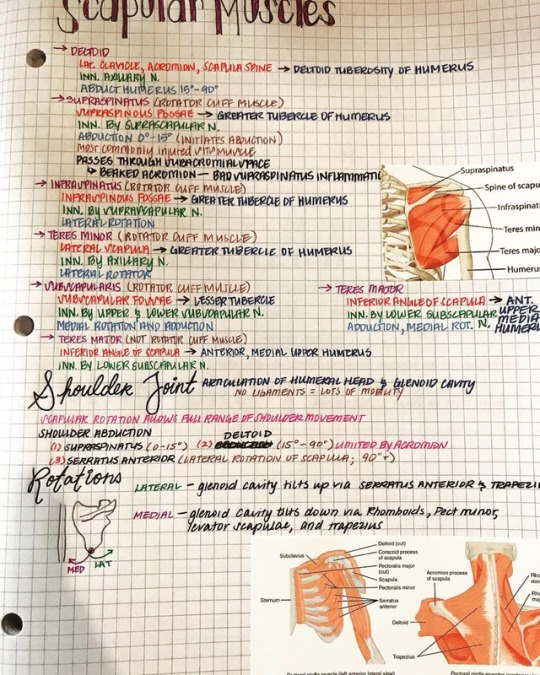 Scapular Muscles
→ DELTOID
LAT. CLAVICLE, ACROMION, SCAPULA SPINE → DELTOID TUBEROSITY OF HUMERUS
INN. AXILLARY N.
ABDUCT HUMERUS 15°-90°
→ SUPRASPINATUS (ROTATOR CUFF MUSCLE)
SUPRASPINOUS FOSSAE → GREATER TUBERCLE OF HUMERUS
INN. BY SUPRASCAPULAR N.
ABDUCTION 0°-15° (INITIATES ABDUCTION)
MOST COMMONLY INJURED SITS MUSCLE
PASSES THROUGH SUBACROMIAL SPACE
↳ BEAKED ACROMION — BAD SUPRASPINATUS INFLAMMATI
→ INFRASPINATUS (ROTATOR CUFF MUSCLE)
INFRASPINOUS FOSSAE → GREATER TUBERCLE OF HUMERUS
INN. BY SUPRASCAPULAR N.
LATERAL ROTATION
→ TERES MINOR (ROTATOR CUFF MUSCLE)
LATERAL SCAPULA → GREATER TUBERCLE OF HUMERUS
INN. BY AXILLARY N.
LATERAL ROTATOR
→ SUBSCAPULARIS (ROTATOR CUFF MUSCLE)
SUBSCAPULAR FOSSAE → LESSER TUBERCLE
INN. BY UPPER & LOWER SUBSCAPULAR N.
MEDIAL ROTATION AND ADDUCTION
→ TERES MAJOR (NOT ROTATOR CUFF MUSCLE)
INFERIOR ANGLE OF SCAPULA → ANTERIOR, MEDIAL UPPER HUMERUS
INN. BY LOWER SUBSCAPULAR N.
Supraspinatus
Spine of scapu
Infraspinat
Teres min
Teres majo
Humerus
→ TERES MAJOR
INFERIOR ANGLE OF SCAPULA → ANT.
UPPER
INN. BY LOWER SUBSCAPULAR N.
MEDIA
ADDUCTION, MEDIAL ROT.
HUMERU
Shoulder Joint ARTICULATION OF HUMERAL HEAD & GLENOID CAVITY
NO LIGAMENTS = LOTS OF MOBILITY
SCAPULAR ROTATION ALLOWS FULL RANGE OF SHOULDER MOVEMENT
SHOULDER ABDUCTION
DELTOID
(1) SUPRASPINATUS (0-15°) (2) (15°-90°) LIMITED BY ACROMION
(3) SERRATUS ANTERIOR (LATERAL ROTATION OF SCAPULA; 90°+)
Rotations
LATERAL — glenoid cavity tilts up via SERRATUS ANTERIOR & TRAPEZI
MEDIAL — glenoid cavity tilts down via Rhomboids, Pect minor,
levator scapulae, and trapezius
MED LAT
Deltoid (cut)
Coracoid process
of scapula
Pectoralis major
(cut)
Scapula
Pectoralis minor
Serratus
anterior
Subclavius
Sternum
Acromion process
of scapula
Deltoid
Trapezius
Rho
min
Rh
maj